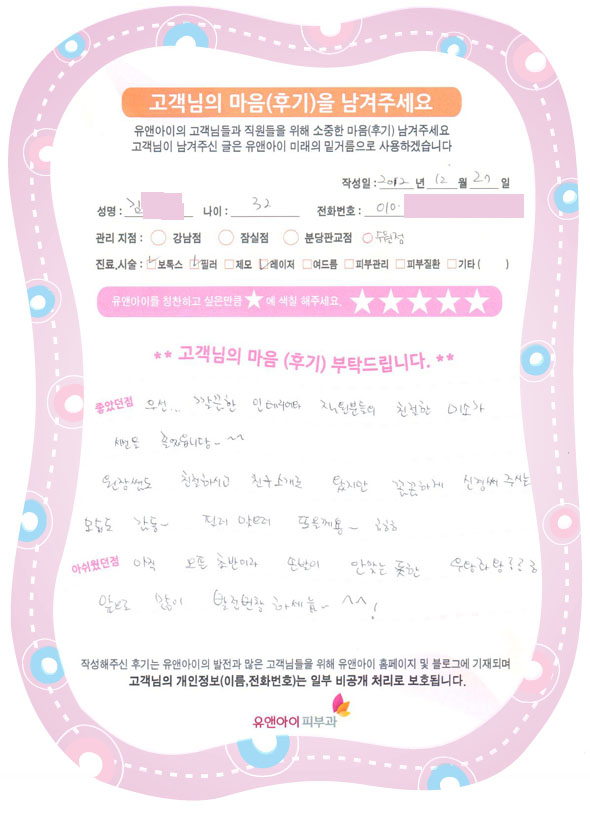 고객님의 마음(후기)을 남겨주세요
유앤아이의 고객님들과 직원들을 위해 소중한 마음(후기) 남겨주세요
고객님이 남겨주신 글은 유앤아이 미래의 밑거름으로 사용하겠습니다
작성일 : 2012 년 12 월 20 일
성명 : 김 나이 : 32 전화번호 : 010.
관리 지점 : 강남점 잠실점 분당판교점 수원점
진료,시술 : 보톡스 필러 제모 레이저 여드름 피부관리 피부질환 기타 ( )
유앤아이를 칭찬하고 싶은만큼 ★ 에 색칠 해주세요. ★★★★★
** 고객님의 마음 (후기) 부탁드립니다. **
좋았던점 우선... 깔끔한 인테리어와 직원분들의 친절한 미소가
~ ^^
원장쌤도 친절하시고 친구소개로 왔지만 꼼꼼하게 신경써 주시는
모습도 감동~ 필러 맞으러 또올께용~ ㅎㅎㅎ
아쉬웠던점 아직 오픈 초반이라 손님이 안맞는 듯한
앞으로 많이 발전번창 하세욤~ ^^!
작성해주신 후기는 유앤아이의 발전과 많은 고객님들을 위해 유앤아이 홈페이지 및 블로그에 기재되며
고객님의 개인정보(이름,전화번호)는 일부 비공개 처리로 보호됩니다.
유앤아이 피부과